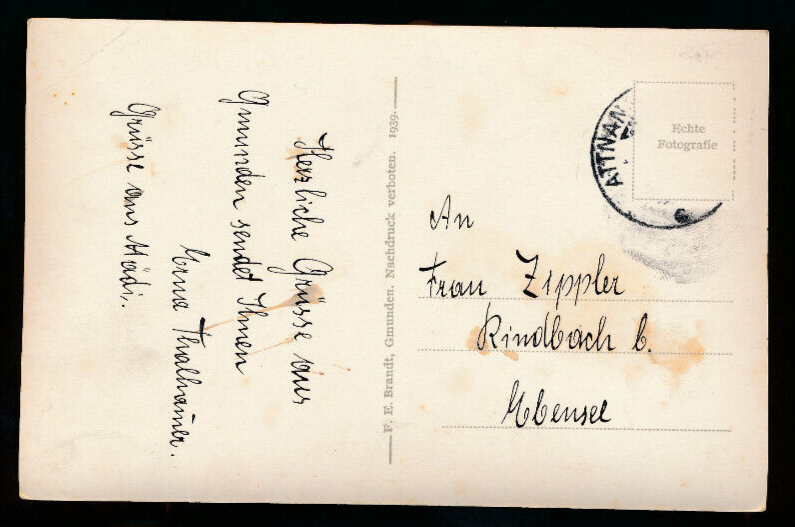 Herzliche Grüsse aus
Gmunden sendet Ihnen
Erna Thalhamer.
Grüsse aus Mädi.
F. E. Brandt, Gmunden. Nachdruck verboten. 1939.
ATTNAN
Echte
Fotografie
An
Frau Zippler
Rindbach b.
Ebensee